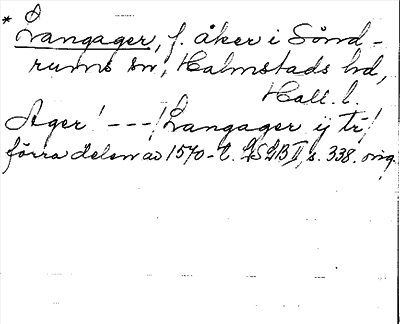 * Langager, f. åker i Sönd-
rums sn, Halmstads hd,
Hall. l.
Ager! ---/Langager ij tr/
förra delen av 1570-t. LSJB II, s. 338. orig.